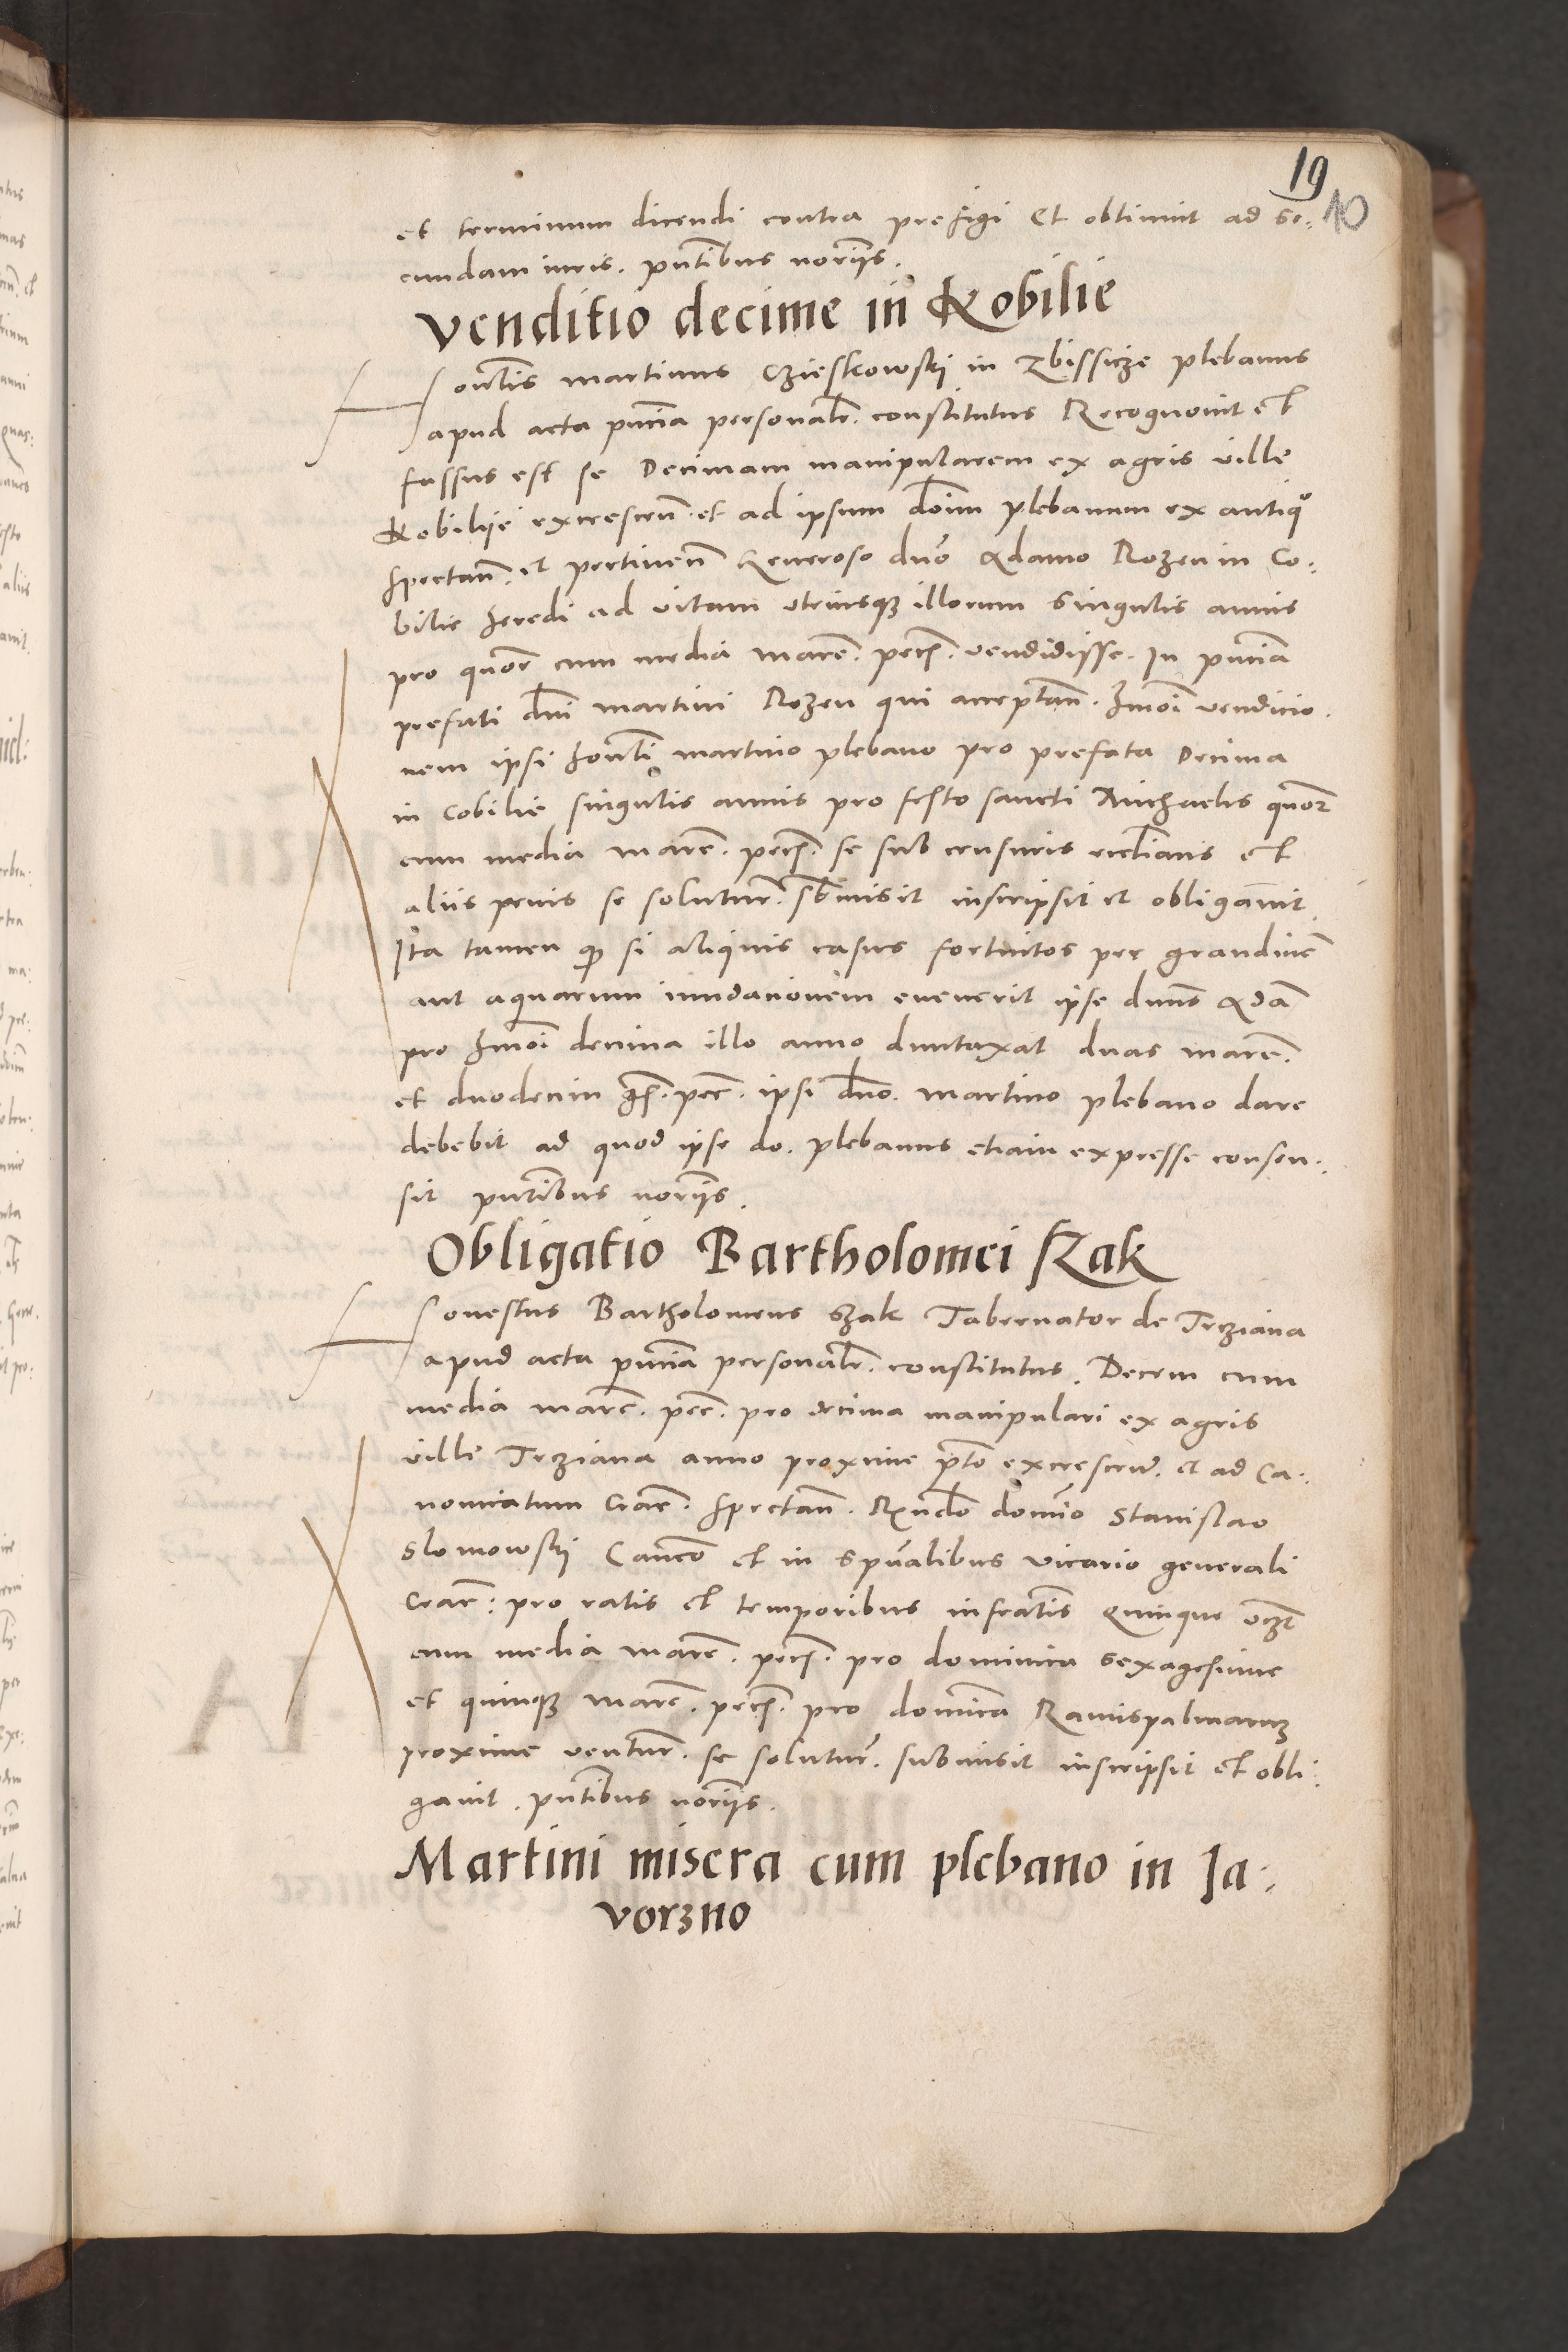 19
10
et terminum dicendi contra prefigi Et obtinuit ad se:
cundam iuris. pntibus noriis.
Venditio decime in Kobilie
Honlis martinus Czieskowski in Zbissicze plebanus
apud acta pncia personalr. constitutus Recognovit et
fassus est se Decimam manipularem ex agris ville
Kobilije excrescen. et ad ipsum dom plebanum ex antiquo
spectan. et pertinen Generoso dno Adamo Rozen in Co:
bilie heredi ad vitam vtriusqz illorum singulis annis
pro quor cum media marc. pecs. vendidisse. In pncia
prefati dni martini Rozen qui acceptan. hmoi vendicio.
nem ipsi honli martino plebano pro prefata Decima
in Cobilie singulis annis pro festo sancti Michaelis quor
cum media marc. pecs. se sub censuris ecclianis et
aliis penis se solutur. sbmisit inscripsit et obligavit.
Ita tamen qp si aliquis casus fortuitos per grandine
aut aquarum inundacionem evenerit ipse dnus Ada
pro hmoi decima illo anno duntaxat duas marc.
et duodecim gs. pec. ipsi dno. martino plebano dare
debebit ad quod ipse do. plebanus etiam expresse consen:
sit pntibus noriis.
Obligatio Bartholomei Szak
Honestus Bartholomeus Szak Tabernator de Trziana
apud acta pncia personalr. constitutus. Decem cum
media marc. pec. pro decima manipulari ex agris
ville Trziana anno proxime pto excrescen. et ad Ca:
nonicatum Crac. spectan. Rndo domino Stanislao
Slomowski Canco et in spualibus vicario generali
Crac: pro ratis et temporibus infractis quinque vczt
cum media marc. pecs. pro dominica sexagesime
et quinqz marc. pecs. pro dominica Ramispalmarum
proxime ventur. se solutur. submisit inscripsit et obli:
gavit. pntibus noriis.
Martini misera cum plebano in Ja:
vorzno